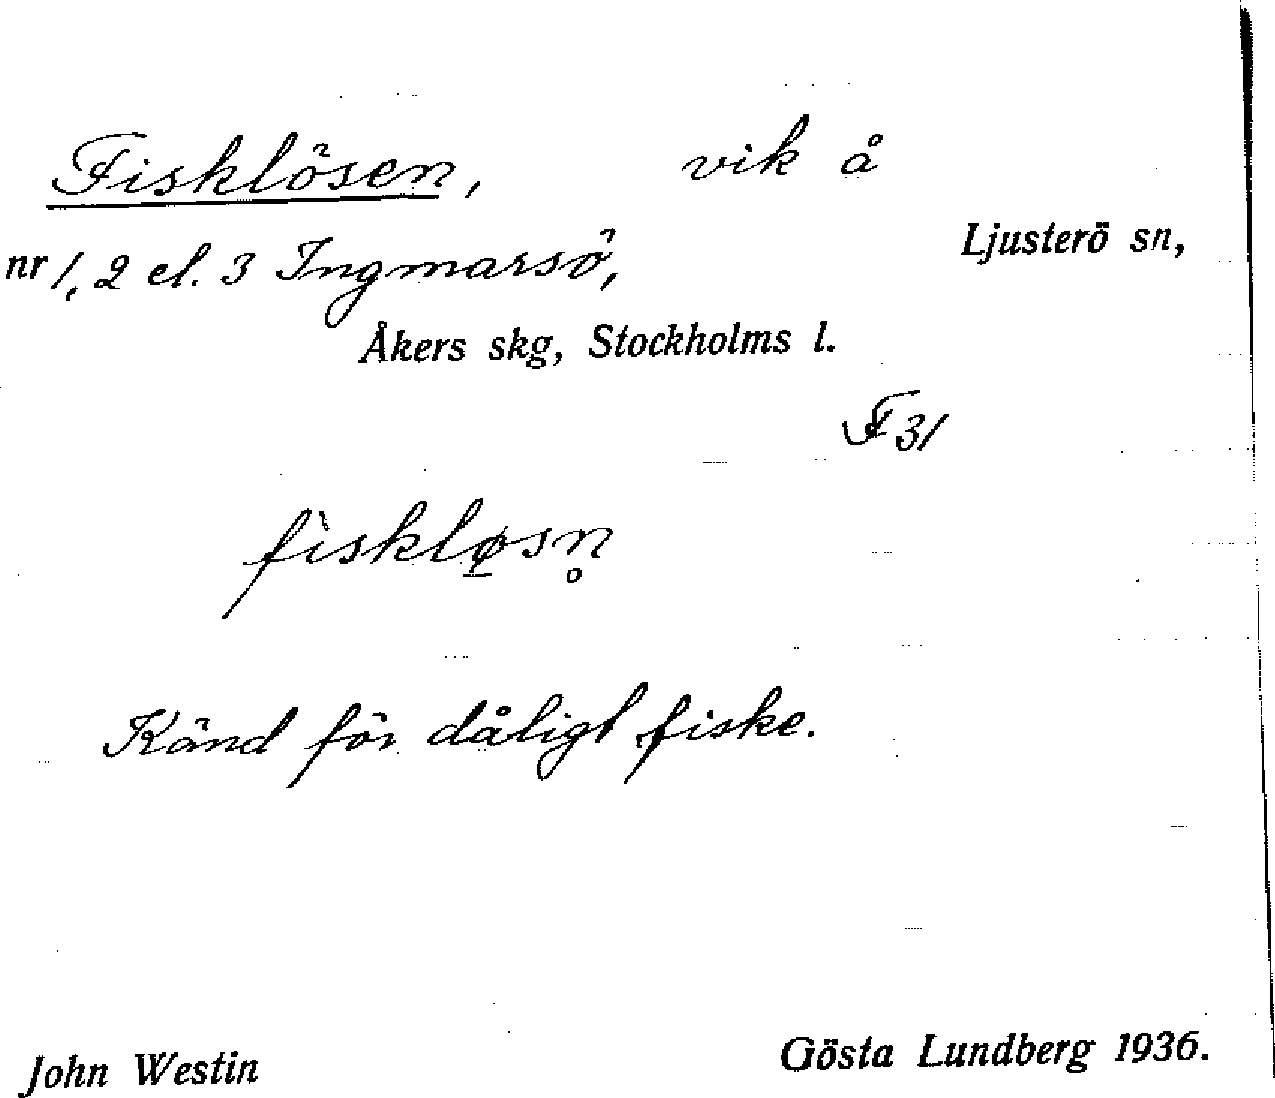 Fisklösen, vik å
Ljusterö sn,
nr 1, 2 el. 3 Ingmarsö,
Åkers skg, Stockholms l.
F 31
fìskløsn̥
Känd för dåligt fiske.
John Westin Gösta Lundberg 1936.